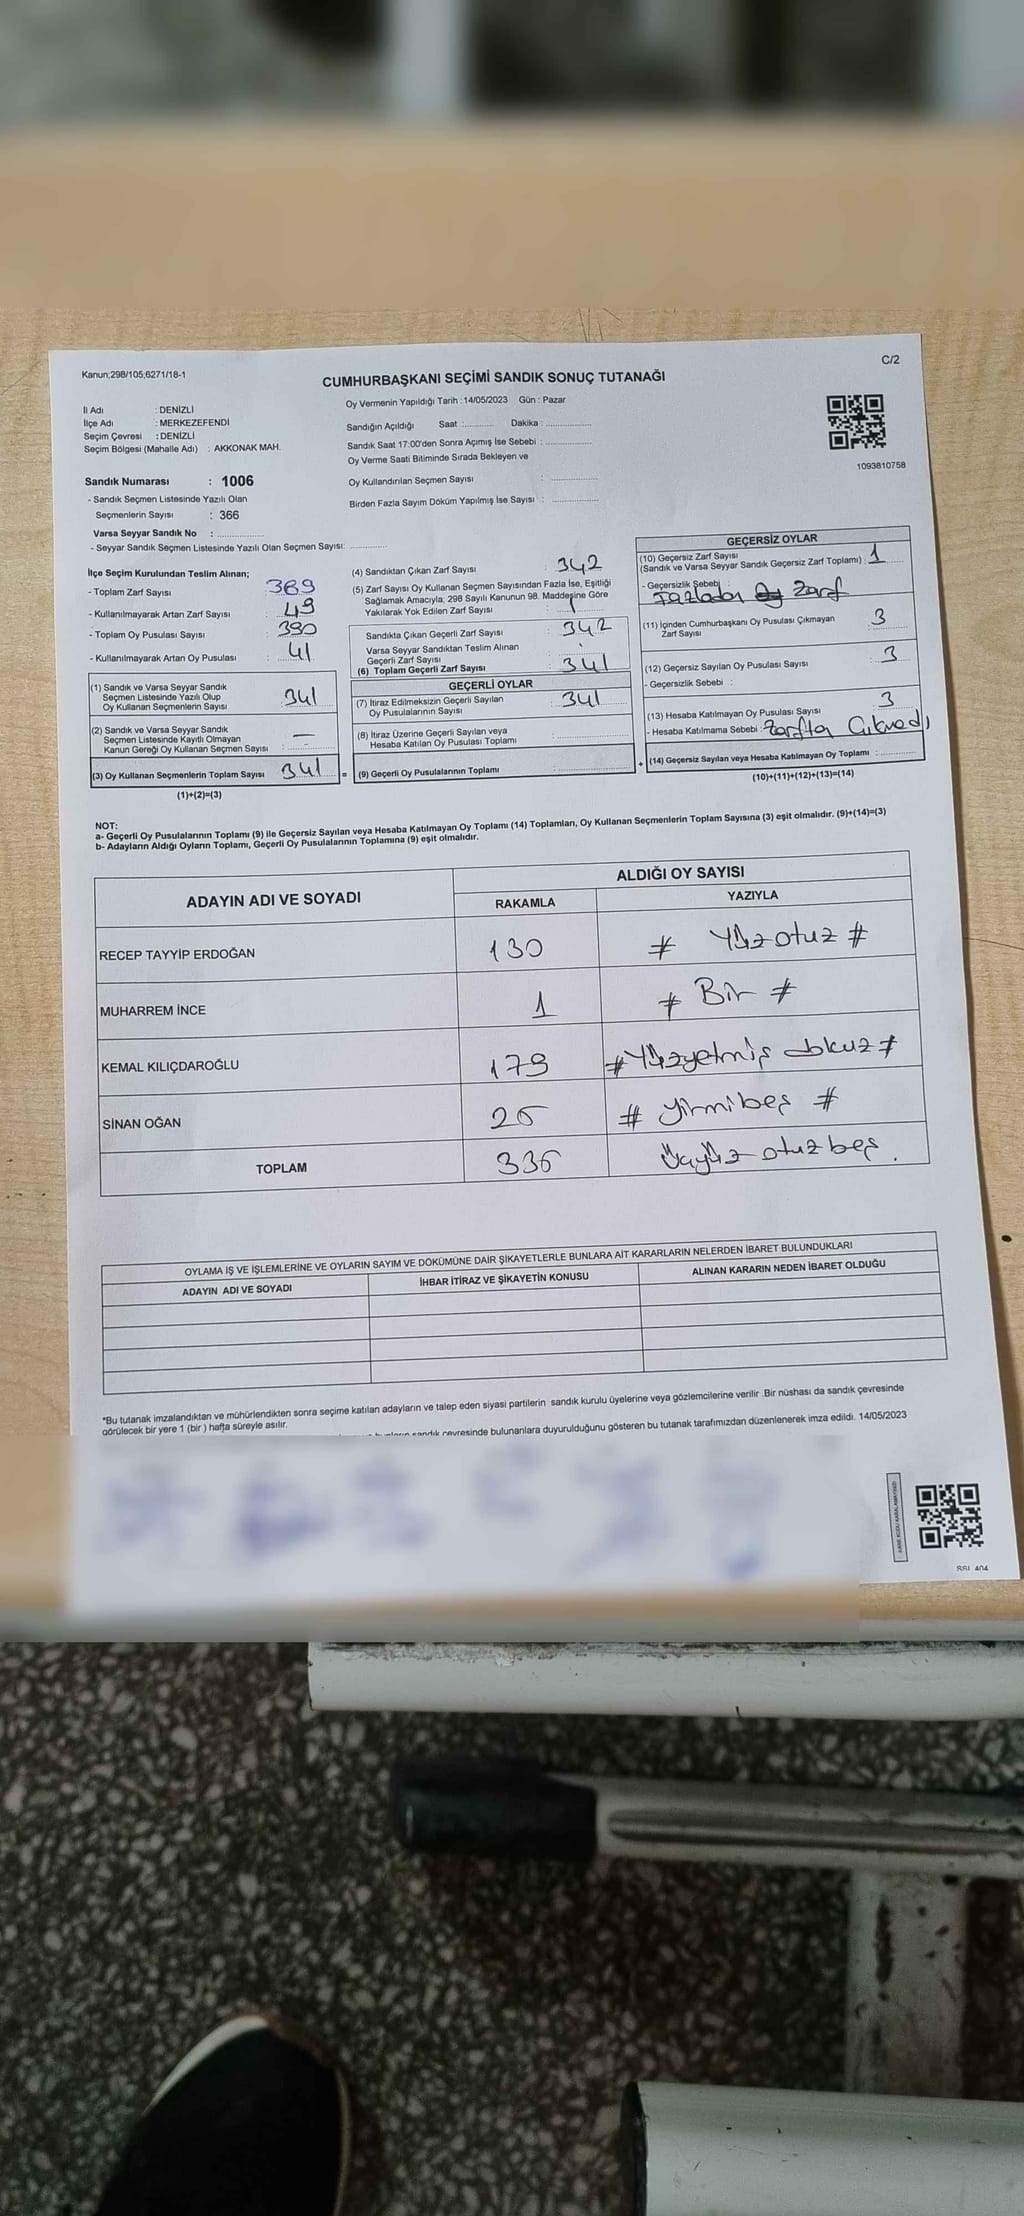 Kanun;298/105;6271/18-1
C/2
CUMHURBAŞKANI SEÇİMİ SANDIK SONUÇ TUTANAĞI
İl Adı : DENİZLİ
İlçe Adı : MERKEZEFENDİ
Seçim Çevresi : DENİZLİ
Seçim Bölgesi (Mahalle Adı) : AKKONAK MAH.
Oy Vermenin Yapıldığı Tarih : 14/05/2023 Gün : Pazar
Sandığın Açıldığı Saat :.......... Dakika : ..............
Sandık Saat 17:00'den Sonra Açımış İse Sebebi : ..............
Oy Verme Saati Bitiminde Sırada Bekleyen ve
Oy Kullandırılan Seçmen Sayısı : ..............
Birden Fazla Sayım Döküm Yapılmış İse Sayısı : ..............
1093810758
Sandık Numarası : 1006
- Sandık Seçmen Listesinde Yazılı Olan
Seçmenlerin Sayısı : 366
Varsa Seyyar Sandık No : ..............
- Seyyar Sandık Seçmen Listesinde Yazılı Olan Seçmen Sayısı: ..........
İlçe Seçim Kurulundan Teslim Alınan;
- Toplam Zarf Sayısı : 389
- Kullanılmayarak Artan Zarf Sayısı : 49
- Toplam Oy Pusulası Sayısı : 390
- Kullanılmayarak Artan Oy Pusulası : 41
(1) Sandık ve Varsa Seyyar Sandık
Seçmen Listesinde Yazılı Olup
Oy Kullanan Seçmenlerin Sayısı : 341
(2) Sandık ve Varsa Seyyar Sandık
Seçmen Listesinde Kayıtlı Olmayan
Kanun Gereği Oy Kullanan Seçmen Sayısı : —
(3) Oy Kullanan Seçmenlerin Toplam Sayısı : 341
(1)+(2)=(3)
(4) Sandıktan Çıkan Zarf Sayısı : 342
(5) Zarf Sayısı Oy Kullanan Seçmen Sayısından Fazla İse, Eşitliği
Sağlamak Amacıyla; 298 Sayılı Kanunun 98. Maddesine Göre
Yakılarak Yok Edilen Zarf Sayısı : 1
Sandıkta Çıkan Geçerli Zarf Sayısı : 342
Varsa Seyyar Sandıktan Teslim Alınan
Geçerli Zarf Sayısı :
(6) Toplam Geçerli Zarf Sayısı : 341
GEÇERLİ OYLAR
(7) İtiraz Edilmeksizin Geçerli Sayılan
Oy Pusulalarının Sayısı : 341
(8) İtiraz Üzerine Geçerli Sayılan veya
Hesaba Katılan Oy Pusulası Toplamı :
= (9) Geçerli Oy Pusulalarının Toplamı :
GEÇERSİZ OYLAR
(10) Geçersiz Zarf Sayısı
(Sandık ve Varsa Seyyar Sandık Geçersiz Zarf Toplamı) : 1
- Geçersizlik Sebebi : Fazladan Oy Zarf
(11) İçinden Cumhurbaşkanı Oy Pusulası Çıkmayan
Zarf Sayısı : 3
(12) Geçersiz Sayılan Oy Pusulası Sayısı : 3
- Geçersizlik Sebebi :
(13) Hesaba Katılmayan Oy Pusulası Sayısı : 3
- Hesaba Katılmama Sebebi : Zarfta Çıkmadı
+ (14) Geçersiz Sayılan veya Hesaba Katılmayan Oy Toplamı : ..........
(10)+(11)+(12)+(13)=(14)
NOT:
a- Geçerli Oy Pusulalarının Toplamı (9) ile Geçersiz Sayılan veya Hesaba Katılmayan Oy Toplamı (14) Toplamları, Oy Kullanan Seçmenlerin Toplam Sayısına (3) eşit olmalıdır. (9)+(14)=(3)
b- Adayların Aldığı Oyların Toplamı, Geçerli Oy Pusulalarının Toplamına (9) eşit olmalıdır.
ADAYIN ADI VE SOYADI ALDIĞI OY SAYISI
RAKAMLA YAZIYLA
RECEP TAYYİP ERDOĞAN 130 # Yüzotuz #
MUHARREM İNCE 1 # Bir #
KEMAL KILIÇDAROĞLU 179 # Yüzyetmiş dokuz #
SİNAN OĞAN 25 # Yirmibeş #
TOPLAM 335 Üçyüz otuzbeş.
OYLAMA İŞ VE İŞLEMLERİNE VE OYLARIN SAYIM VE DÖKÜMÜNE DAİR ŞİKAYETLERLE BUNLARA AİT KARARLARIN NELERDEN İBARET BULUNDUKLARI
ADAYIN ADI VE SOYADI İHBAR İTİRAZ VE ŞİKAYETİN KONUSU ALINAN KARARIN NEDEN İBARET OLDUĞU
*Bu tutanak imzalandıktan ve mühürlendikten sonra seçime katılan adayların ve talep eden siyasi partilerin sandık kurulu üyelerine veya gözlemcilerine verilir .Bir nüshası da sandık çevresinde
görülecek bir yere 1 (bir ) hafta süreyle asılır.
sandık çevresinde bulunanlara duyurulduğunu gösteren bu tutanak tarafımızdan düzenlenerek imza edildi. 14/05/2023